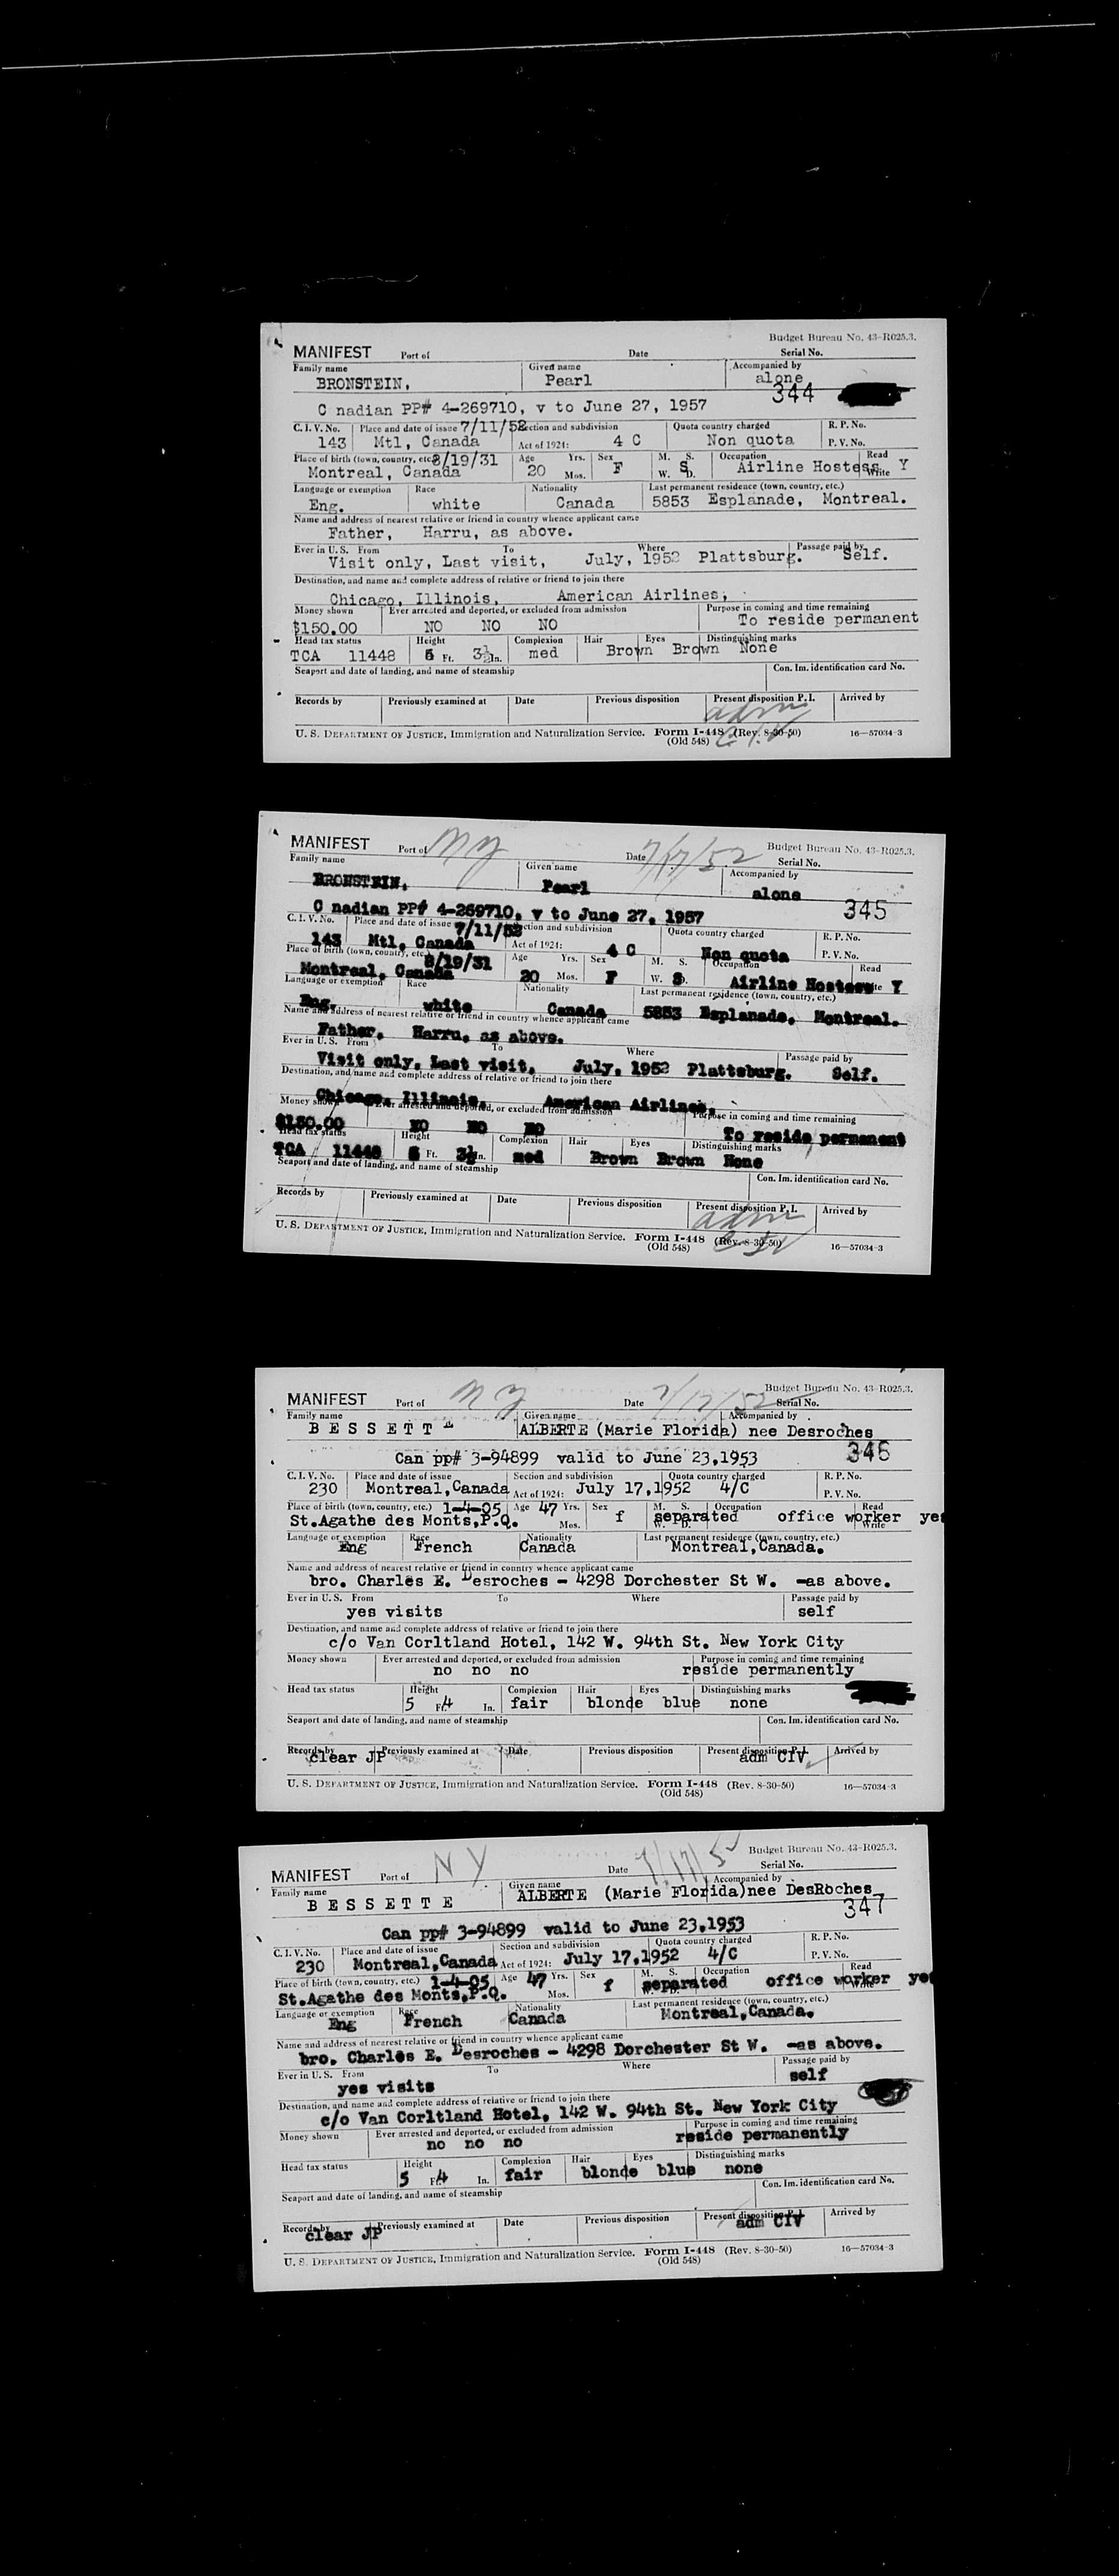 Budget Bureau No. 43-R025.3.
MANIFEST Port of Date Serial No.
Family name Given name Accompanied by
BRONSTEIN, Pearl alone
344
C nadian PP# 4-269710, v to June 27, 1957
C. I. V. No. Place and date of issue 7/11/52 Section and subdivision Quota country charged R. P. No.
143 Mtl, Canada Act of 1924: 4 C Non quota P. V. No.
Place of birth (town, country, etc.) 8/19/31 Age Yrs. Sex M. S. Occupation Read
Montreal, Canada 20 Mos. F W. S D. Airline Hostess Write Y
Language or exemption Race Nationality Last permanent residence (town, country, etc.)
Eng. white Canada 5853 Esplanade, Montreal.
Name and address of nearest relative or friend in country whence applicant came
Father, Harru, as above.
Ever in U. S. From To Where Passage paid by
Visit only, Last visit, July, 1952 Plattsburg. Self.
Destination, and name and complete address of relative or friend to join there
Chicago, Illinois, American Airlines,
Money shown Ever arrested and deported, or excluded from admission Purpose in coming and time remaining
$150.00 NO NO NO To reside permanent
Head tax status Height Complexion Hair Eyes Distinguishing marks
TCA 11448 5 Ft. 3½ In. med Brown Brown None
Seaport and date of landing, and name of steamship Con. Im. identification card No.
Records by Previously examined at Date Previous disposition Present disposition P. I. Arrived by
adm
CIV
U. S. DEPARTMENT OF JUSTICE, Immigration and Naturalization Service. Form I-448 (Rev. 8-30-50) 16—57034-3
(Old 548)
Budget Bureau No. 43-R025.3.
MANIFEST Port of NY Date 7/17/52 Serial No.
Family name Given name Accompanied by
BRONSTEIN, Pearl alone
345
C nadian PP# 4-269710, v to June 27, 1957
C. I. V. No. Place and date of issue 7/11/52 Section and subdivision Quota country charged R. P. No.
143 Mtl, Canada Act of 1924: 4 C Non quota P. V. No.
Place of birth (town, country, etc.) 8/19/31 Age Yrs. Sex M. S. Occupation Read
Montreal, Canada 20 Mos. F W. S D. Airline Hostess Write Y
Language or exemption Race Nationality Last permanent residence (town, country, etc.)
Eng. white Canada 5853 Esplanade, Montreal.
Name and address of nearest relative or friend in country whence applicant came
Father, Harru, as above.
Ever in U. S. From To Where Passage paid by
Visit only, Last visit, July, 1952 Plattsburg. Self.
Destination, and name and complete address of relative or friend to join there
Chicago, Illinois, American Airlines,
Money shown Ever arrested and deported, or excluded from admission Purpose in coming and time remaining
$150.00 NO NO NO To reside permanent
Head tax status Height Complexion Hair Eyes Distinguishing marks
TCA 11448 5 Ft. 3½ In. med Brown Brown None
Seaport and date of landing, and name of steamship Con. Im. identification card No.
Records by Previously examined at Date Previous disposition Present disposition P. I. Arrived by
adm
CIV
U. S. DEPARTMENT OF JUSTICE, Immigration and Naturalization Service. Form I-448 (Rev. 8-30-50) 16—57034-3
(Old 548)
Budget Bureau No. 43-R025.3.
MANIFEST Port of NY Date 7/17/52 Serial No.
Family name Given name Accompanied by
B E S S E T T E ALBERTE (Marie Florida) nee Desroches
346
Can pp# 3-94899 valid to June 23,1953
C. I. V. No. Place and date of issue Section and subdivision Quota country charged R. P. No.
230 Montreal,Canada Act of 1924: July 17,1952 4/C P. V. No.
Place of birth (town, country, etc.) 1-4-05 Age 47 Yrs. Sex M. S. Occupation Read
St.Agathe des Monts,P.Q. Mos. f separated W. D. office worker Write yes
Language or exemption Race Nationality Last permanent residence (town, country, etc.)
Eng French Canada Montreal,Canada.
Name and address of nearest relative or friend in country whence applicant came
bro. Charles E. Desroches - 4298 Dorchester St W. -as above.
Ever in U. S. From To Where Passage paid by
yes visits self
Destination, and name and complete address of relative or friend to join there
c/o Van Corltland Hotel, 142 W. 94th St. New York City
Money shown Ever arrested and deported, or excluded from admission Purpose in coming and time remaining
no no no reside permanently
Head tax status Height Complexion Hair Eyes Distinguishing marks
5 Ft. 4 In. fair blonde blue none
Seaport and date of landing, and name of steamship Con. Im. identification card No.
Records by Previously examined at Date Previous disposition Present disposition P. I. Arrived by
clear JP adm CIV
U. S. DEPARTMENT OF JUSTICE, Immigration and Naturalization Service. Form I-448 (Rev. 8-30-50) 16—57034-3
(Old 548)
Budget Bureau No. 43-R025.3.
MANIFEST Port of NY Date 7/17/52 Serial No.
Family name Given name Accompanied by
B E S S E T T E ALBERTE (Marie Florida)nee DesRoches
347
Can pp# 3-94899 valid to June 23,1953
C. I. V. No. Place and date of issue Section and subdivision Quota country charged R. P. No.
230 Montreal,Canada Act of 1924: July 17,1952 4/C P. V. No.
Place of birth (town, country, etc.) 1-4-05 Age 47 Yrs. Sex M. S. Occupation Read
St.Agathe des Monts,P.Q. Mos. f separated W. D. office worker Write yes
Language or exemption Race Nationality Last permanent residence (town, country, etc.)
Eng French Canada Montreal,Canada.
Name and address of nearest relative or friend in country whence applicant came
bro. Charles E. Desroches - 4298 Dorchester St W. -as above.
Ever in U. S. From To Where Passage paid by
yes visits self
Destination, and name and complete address of relative or friend to join there
c/o Van Corltland Hotel, 142 W. 94th St. New York City
Money shown Ever arrested and deported, or excluded from admission Purpose in coming and time remaining
no no no reside permanently
Head tax status Height Complexion Hair Eyes Distinguishing marks
5 Ft. 4 In. fair blonde blue none
Seaport and date of landing, and name of steamship Con. Im. identification card No.
Records by Previously examined at Date Previous disposition Present disposition P. I. Arrived by
clear JP adm CIV
U. S. DEPARTMENT OF JUSTICE, Immigration and Naturalization Service. Form I-448 (Rev. 8-30-50) 16—57034-3
(Old 548)